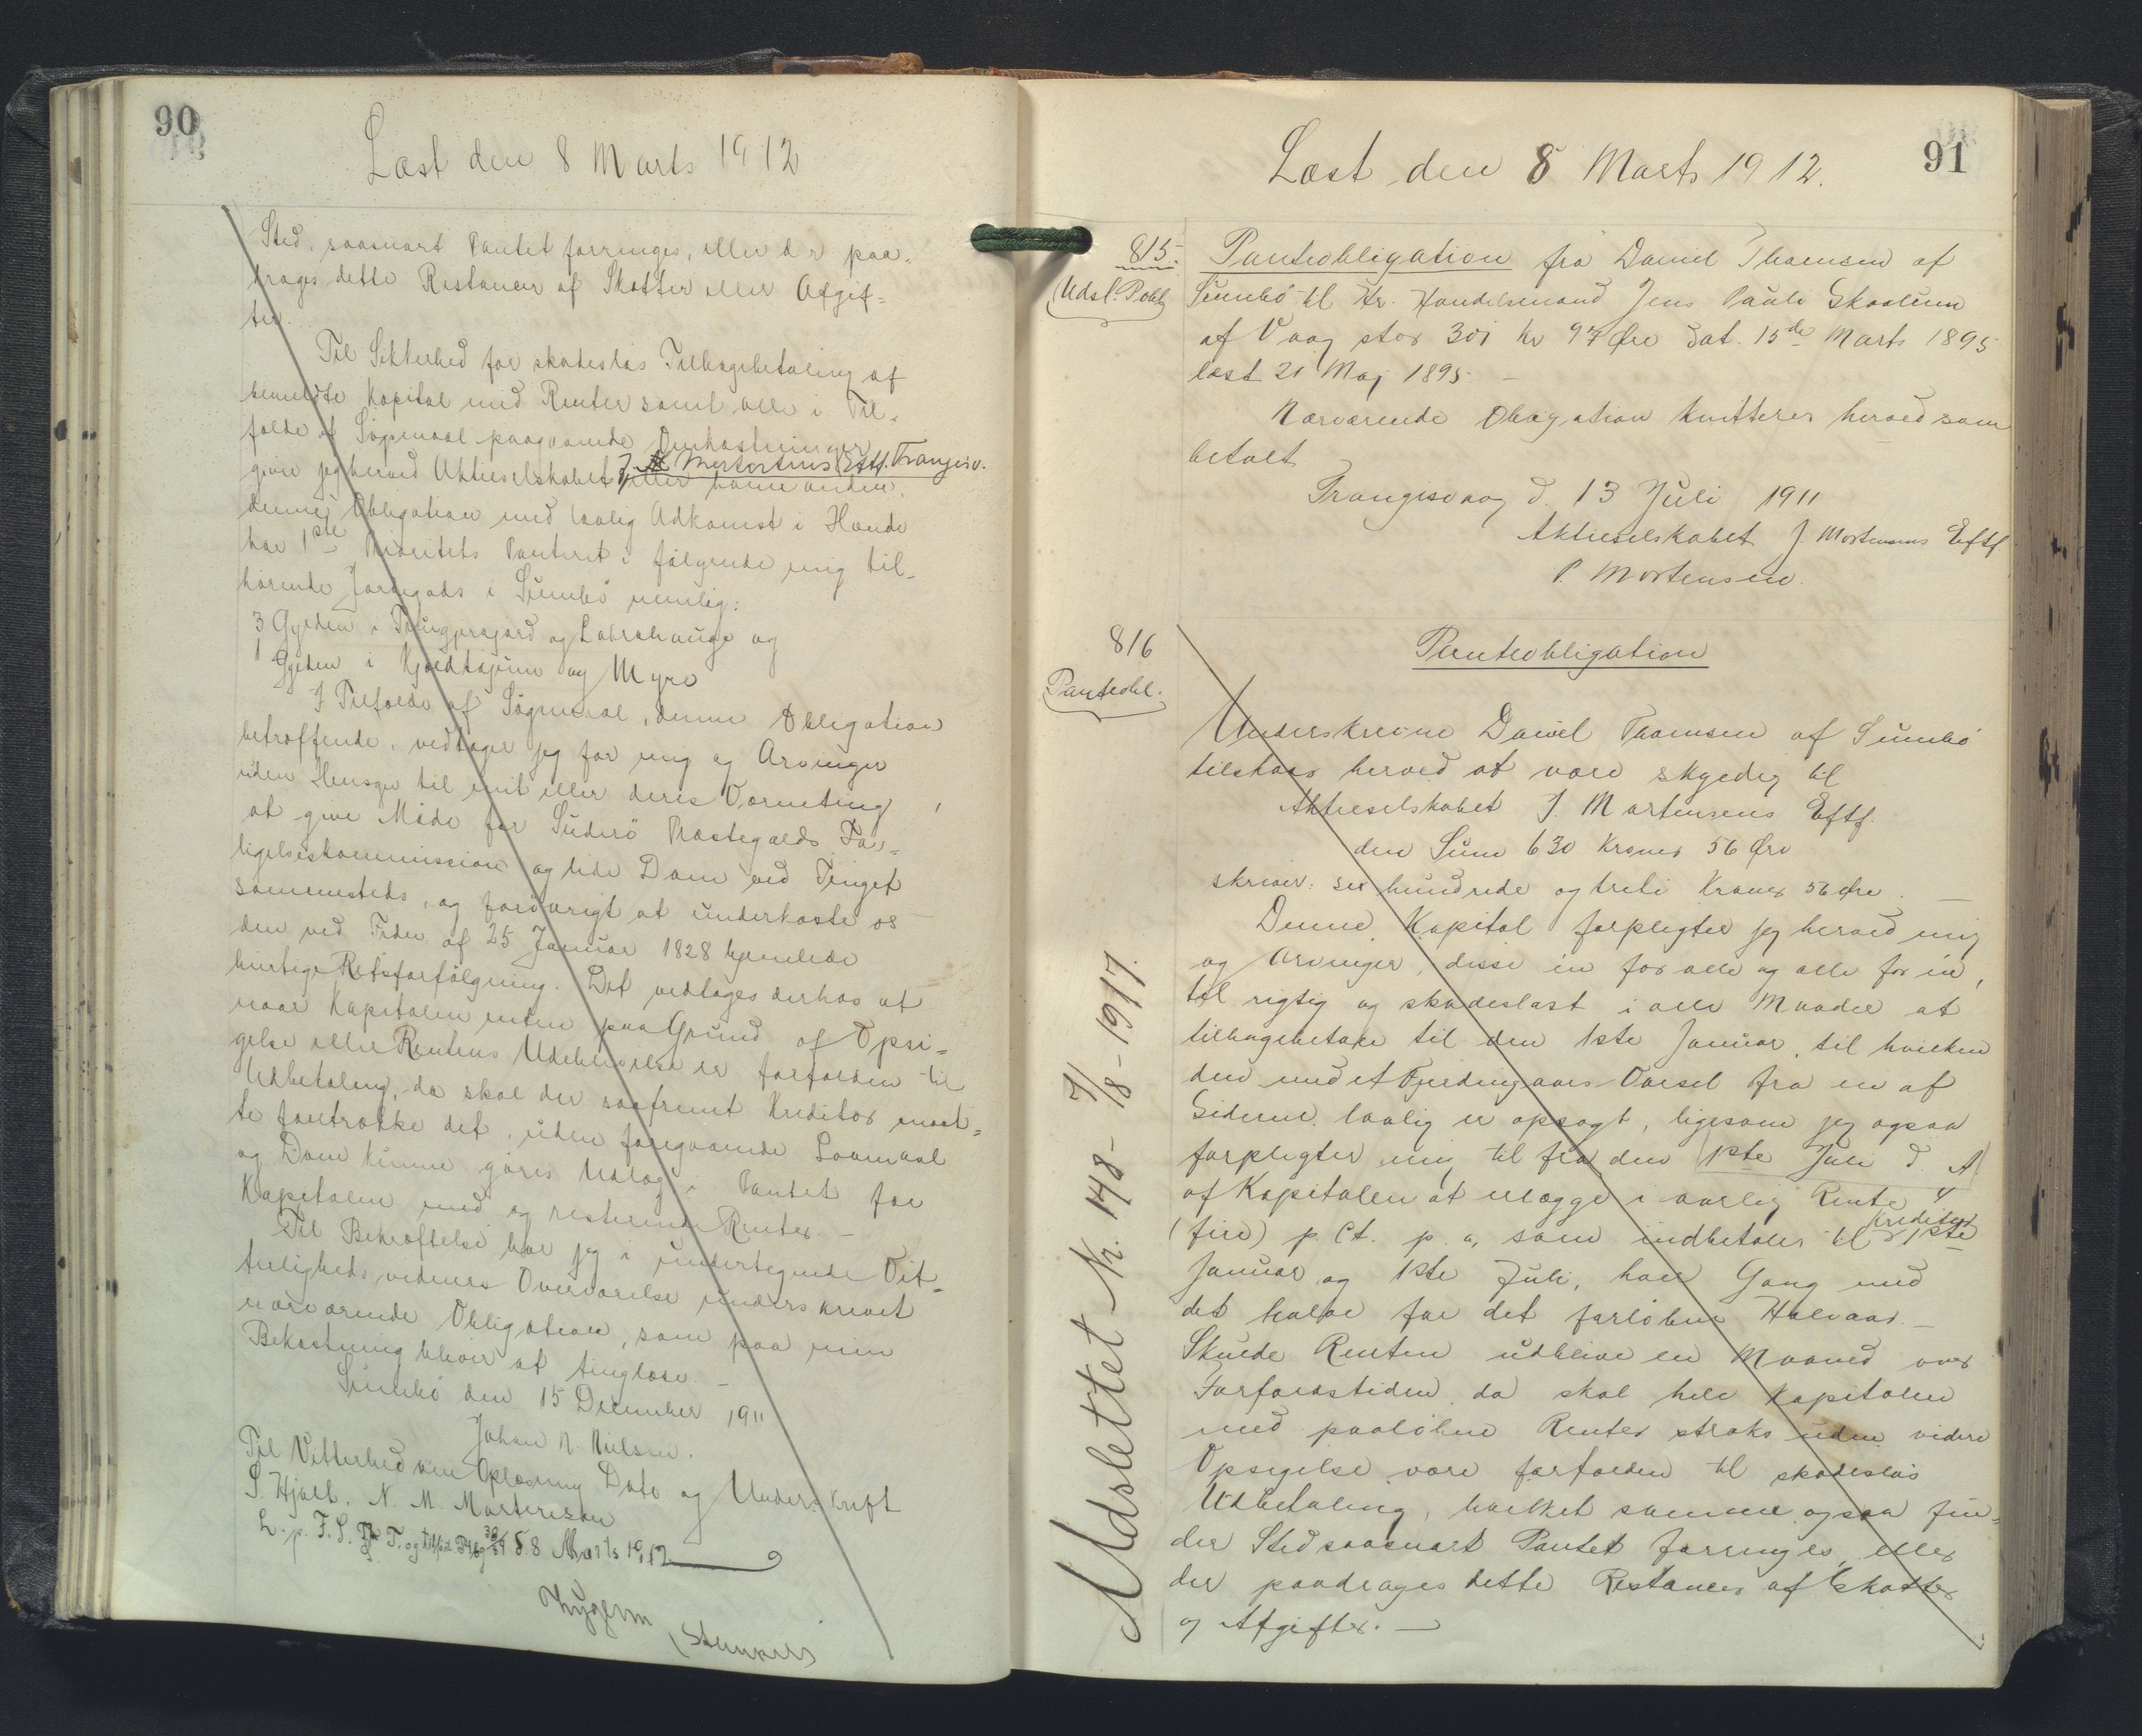 90
Læst den 8 Marts 1912
Sted, saasnart Pantet forringes, eller der paa-
drages dette Restancer af Skatter eller Afgif-
ter.
Til Sikkerhed for skadesløs Tilbagebetaling af
bemeldte Kapital med Renter samt alle i Til-
fælde af Søgsmaal paagaaende Omkostninger
giver jeg herved Aktieselskabet J. Mortensens Eftf. Trangisv.
eller hvem anden,
denne Obligation med lovlig Adkomst i Hænde
har 1ste Prioritets Panteret i følgende mig til-
hørende Jordegods i Sumbø nemlig:
3 Gylden i og Labrahauge og
1 Gylden i og Myre
I Tilfælde af Søgsmaal, denne Obligation
betræffende, vedtager jeg for mig og Arvinger
uden Hensyn til mit eller deres Værneting,
at give Møde for Suderø Præstegælds For-
ligelseskommission og lide Dom ved Tinget
sammesteds, og forøvrigt at underkaste os
den ved Frdn af 25 Januar 1828 hjemlede
hurtige Retsforfølgning. Det vedtages derhos at
naar Kapitalen enten paa Grund af Opsi-
gelse eller Rentens Udeblivelse er forfalden til
Udbetaling, da skal der saafremt Kreditor maat-
te foretrække det, uden foregaaende Lovmaal
og Dom kunne gøres Udlæg i Pantet for
Kapitalen med og resterende Renter. -
Til Bekræftelse har jeg i undertegnede Vit-
terligheds vidners Overværelse underskrevet
nærværende Obligation, som paa min
Bekostning bliver at tinglæse. -
Sumbø den 15 December 1911
Johan N. Nielsen.
Til Vitterlighed om Oplæsning Dato og Underskrift
S. Hjalt. N. M. Mortensen
L. p. F. S. T. og 8 Marts 1912

91
Læst den 8 Marts 1912.
815.
Udsl. Pobl
Panteobligation fra Daniel Thomsen af
Sumbø til Hr. Handelsmand Jens Pauli Skaalum
af Vaag stor 301 Kr 97 Øre dat. 15de Marts 1895
læst 21 Maj 1895. -
Nærværende Obligation kvitteres herved som
betalt
Trangisvaag d. 13 Juli 1911
Aktieselskabet J. Mortensens Eftf
P. Mortensen.
816
Panteobl.
Panteobligation
Underskrevne Daniel Thomsen af Sumbø
tilstaar herved at være skyldig til
Aktieselskabet J. Mortensens Eftf.
den Sum 630 Kroner 56 Øre
skriver: sex hundrede og treti Kroner 56 Øre. -
Denne Kapital forpligter jeg herved mig
og Arvinger, disse en for alle og alle for en,
til rigtig og skadesløst i alle Maader at
tilbagebetale til den 1ste Januar, til hvilken
den med et Fjerdingaars Varsel fra en af
Siderne lovlig er opsagt, ligesom jeg ogsaa
forpligter mig til fra den 1ste Juli d. A
af Kapitalen at erlægge i aarlig Rente 4
(fire) p. Ct. p. a, som indbetales til Kreditor 1ste
Januar og 1ste Juli, hver Gang med
det halve for det forløbne Halvaar. -
Skulde Renten udblive en Maaned over
Forfaldstiden, da skal hele Kapitalen
med paaløbne Renter straks uden videre
Opsigelse være forfalden til skadesløs
Udbetaling, hvilket samme ogsaa fin-
der Sted saasnart Pantet forringes, eller
der paadrages dette Restancer af Skatter
og Afgifter. -
Udslettet Nr. 148 - 7/8 - 1917.